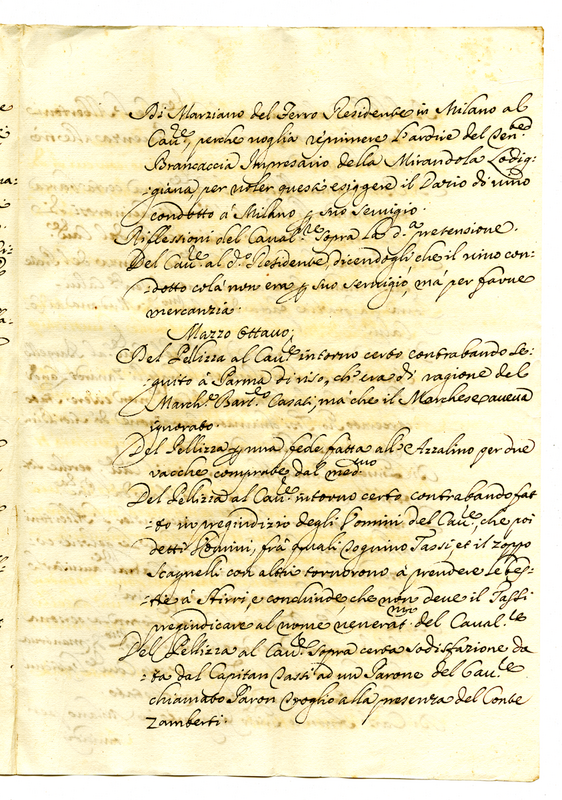 Di Marziano del Ferro Residente in Milano al
Cau.re, perche voglia reprimere l'ardire del
Brancaccia Impresario della Mirandola Lodig=
=giana per voler questo esiggere il Dazio di vino
condotto à Milano p suo seruigio.
Riflessioni del Caual.re sopra la d.a pretensione.
Del Cau.re al d.o Residente, dicendogli che il vino con=
=dotto colà non era p suo seruigio, mà per farne
mercanzia.
Mazzo Ottauo;
Del Pellizza al Cau.re intorno certo contrabando se=
=guito à Parma di riso, ch'era di ragione del
March.e Bart.o Casati, ma che il Marchese aueua
ignorato.
Del Pellizza p una fede fatta all' Azzalino per due
vacche comprate dal med.mo
Del Pellizza al Cau.re intorno certo contrabando fat=
=to in pregiudizio degli Uomini del Cau.re, che poi
detti Uomini, frà quali Tassi, et il zoppo
Scagnelli con altri tornorono à prendere le bes=
=tie à Stirri, e conclude, che non deue il Tassi
pregiudicare al nome venerat.mo del Caual.re
Del Pellizza al Cau.re sopra certa sodisfazione da=
=ta dal Capitan Tassi ad un Parone del Cau.re
chiamato Paron alla presenza del Conte
Zamberti.